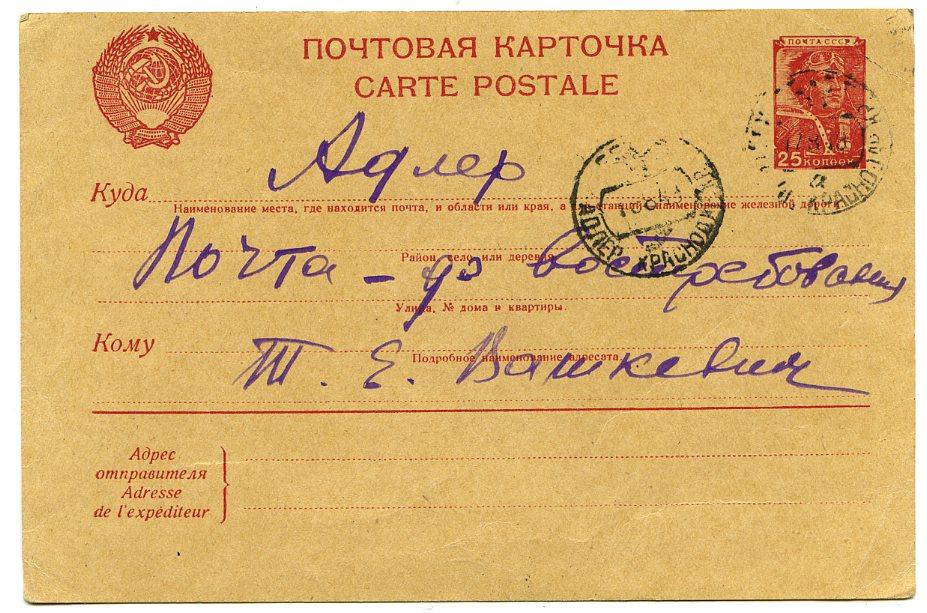 ПОЧТОВАЯ КАРТОЧКА
CARTE POSTALE
ПОЧТА СССР
25 КОПЕЕК
Куда Адлер
Наименование места, где находится почта, и области или края, а для станций наименование железной дороги
Почта - до востребования
Район, село или деревня
Улица, № дома и квартиры.
АДЛЕР КРАСНОД
Кому Т. Е. Вашкевич
Подробное наименование адресата.
Адрес
отправителя
Adresse
de l'expéditeur